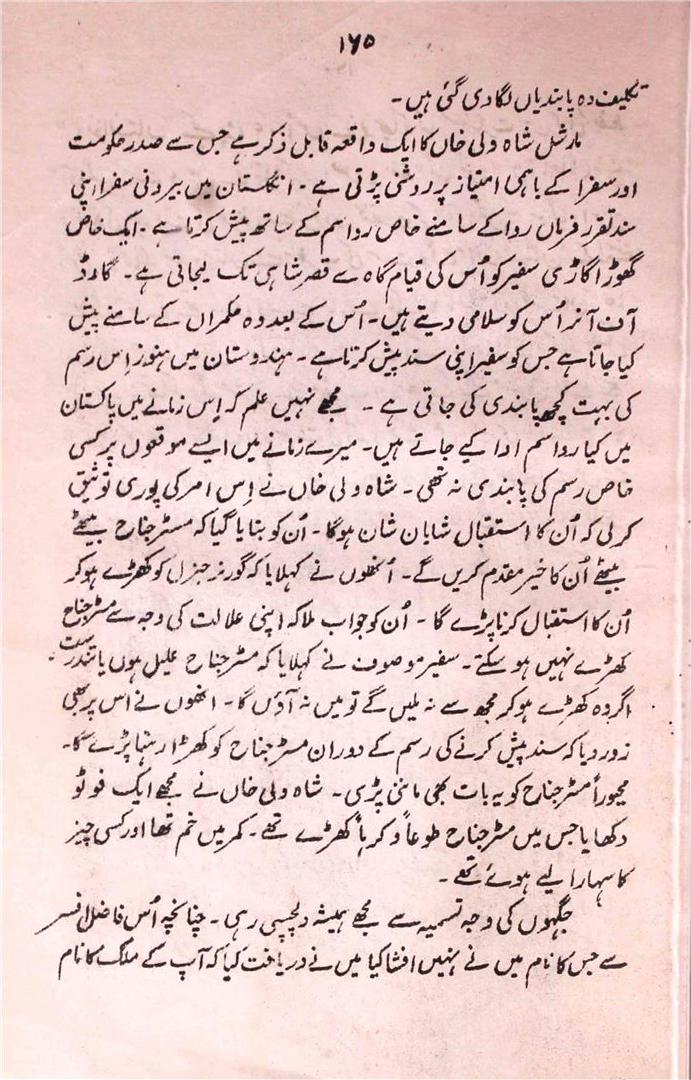 ۱۶۵
تکلیف دہ پابندیاں لگا دی گئی ہیں۔
مارشل شاہ ولی خاں کا ایک واقعہ قابل ذکر ہے جس سے صدر حکومت
اور سفرا کے باہمی امتیاز پر روشنی پڑتی ہے۔ انگلستان میں بیرونی سفرا اپنی
سند تقرر فرماں روا کے سامنے خاص رواسم کے ساتھ پیش کرتا ہے۔ ایک خاص
گھوڑا گاڑی سفیر کو اُس کی قیام گاہ سے قصر شاہی تک لیجاتی ہے۔ گارڈ
آف آنر اُس کو سلامی دیتے ہیں۔ اُس کے بعد وہ حکمراں کے سامنے پیش
کیا جاتا ہے جس کو سفیر اپنی سند پیش کرتا ہے۔ ہندوستان میں ہنوز اِس رسم
کی بہت کچھ پابندی کی جاتی ہے۔ مجھے نہیں علم کہ اِس زمانے میں پاکستان
میں کیا رواسم ادا کیے جاتے ہیں۔ میرے زمانے میں ایسے موقعوں پر کسی
خاص رسم کی پابندی نہ تھی۔ شاہ ولی خاں نے اِس امر کی پوری توثیق
کر لی کہ اُن کا استقبال شایان شان ہوگا۔ اُن کو بتایا گیا کہ مسٹر جناح بیٹھے
بیٹھے اُن کا خیر مقدم کریں گے۔ اُنھوں نے کہلایا کہ گورنر جنرل کو کھڑے ہو کر
اُن کا استقبال کرنا پڑے گا۔ اُن کو جواب ملا کہ اپنی علالت کی وجہ سے مسٹر جناح
کھڑے نہیں ہو سکتے۔ سفیر موصوف نے کہلایا کہ مسٹر جناح علیل ہوں یا تندرست۔
اگر وہ کھڑے ہو کر مجھ سے نہ ملیں گے تو میں نہ آؤں گا۔ انھوں نے اس پر بھی
زور دیا کہ سند پیش کرنے کی رسم کے دوران مسٹر جناح کو کھڑا رہنا پڑے گا۔
مجبوراً مسٹر جناح کو یہ بات بھی ماننی پڑی۔ شاہ ولی خاں نے مجھے ایک فوٹو
دکھایا جس میں مسٹر جناح طوعاً و کرہاً کھڑے تھے۔ کمر میں خم تھا اور کسی چیز
کا سہارا لیے ہوئے تھے۔
جگہوں کی وجہ تسمیہ سے مجھے ہمیشہ دلچسپی رہی۔ چنانچہ اُس فاضل افسر
سے جس کا نام میں نے نہیں افشا کیا میں نے دریافت کیا کہ آپ کے ملک کا نام